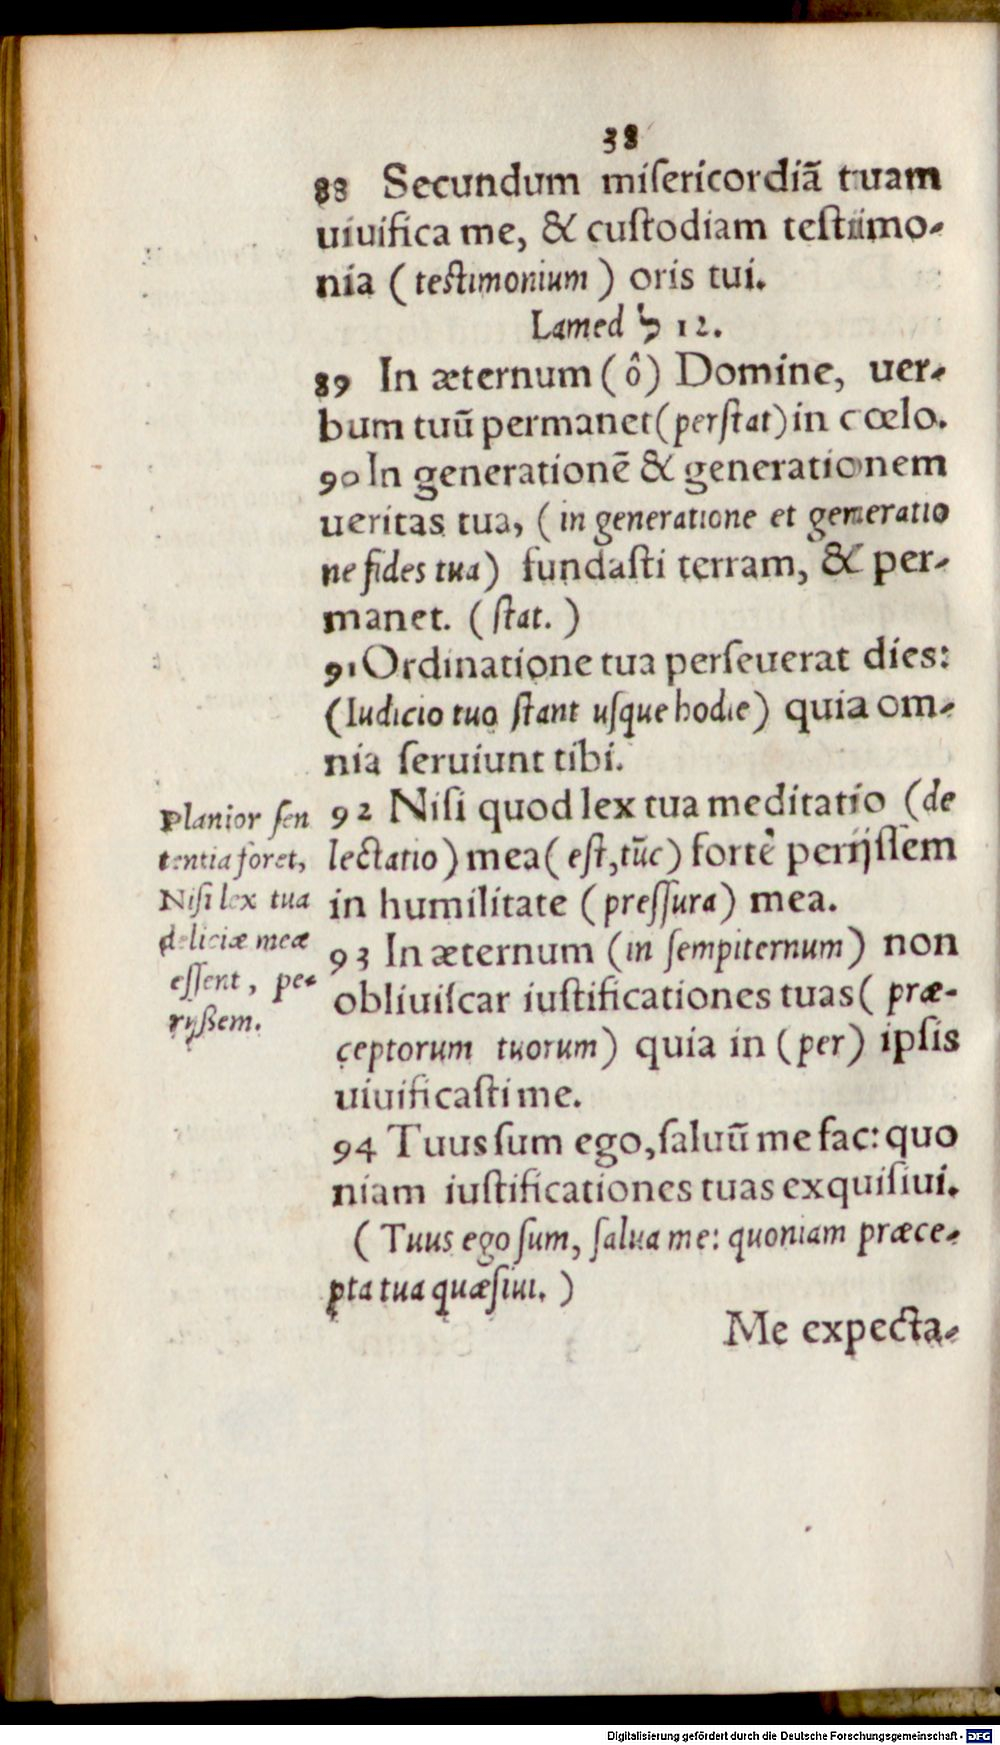 38
88 Secundum misericordiã tuam
uiuifica me, & custodiam testimo-
nia (testimonium) oris tui.
Lamed ל 12.
89 In æternum (ô) Domine, uer-
bum tuũ permanet (perstat) in cœlo.
90 In generationẽ & generationem
ueritas tua, (in generatione et generatio
ne fides tua) fundasti terram, & per-
manet. (stat.)
91 Ordinatione tua perseuerat dies:
(Iudicio tuo stant usque hodie) quia om-
nia seruiunt tibi.
92 Nisi quod lex tua meditatio (de
lectatio) mea (est, tũc) fortè perijssem
in humilitate (pressura) mea.
93 In æternum (in sempiternum) non
obliuiscar iustificationes tuas (præ-
ceptorum tuorum) quia in (per) ipsis
uiuificasti me.
94 Tuus sum ego, saluũ me fac: quo
niam iustificationes tuas exquisiui.
(Tuus ego sum, salua me: quoniam præce-
pta tua quæsiui.)
Me expecta-
Planior sen
tentia foret,
Nisi lex tua
deliciæ meæ
essent, pe-
rijßem.
Digitalisierung gefördert durch die Deutsche Forschungsgemeinschaft - DFG